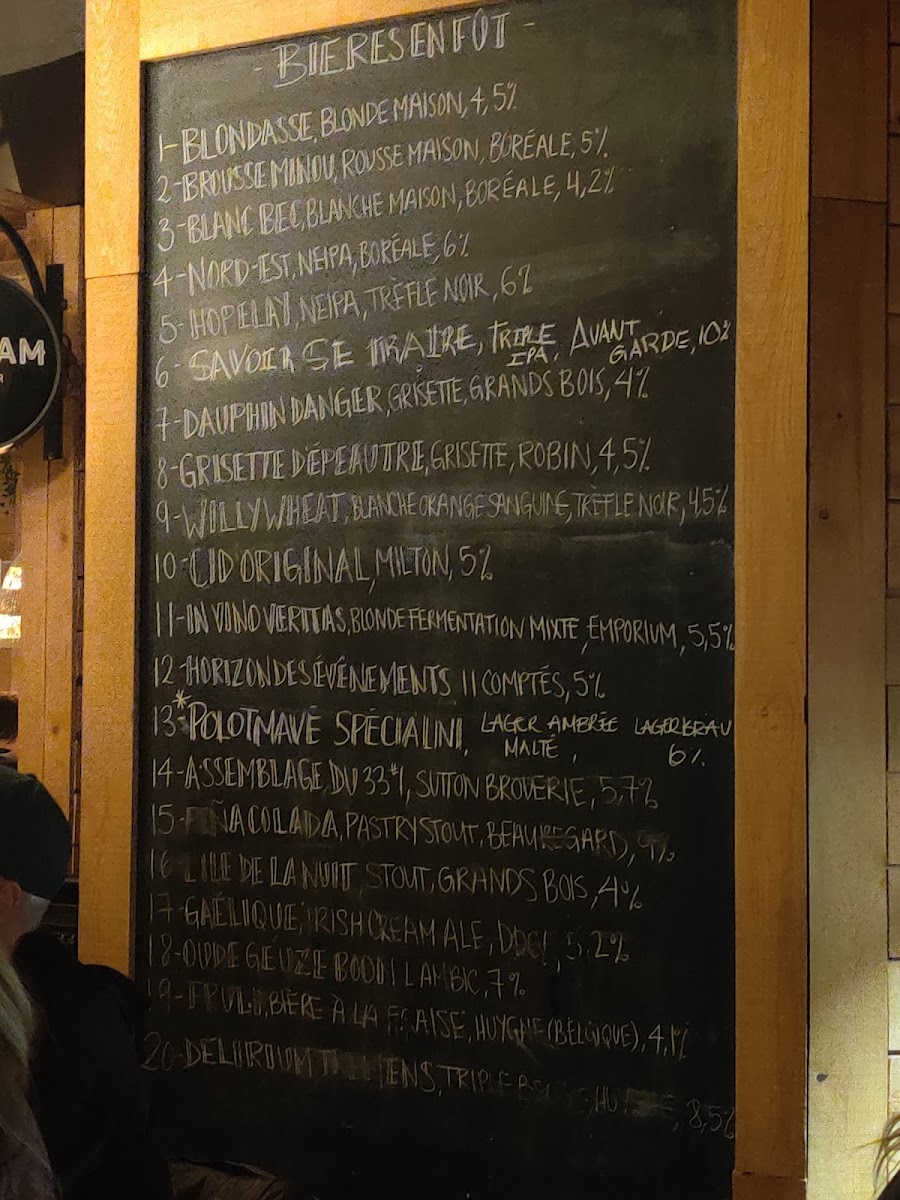 - BIÈRES EN FÛT -
1- BLONDASSE, BLONDE MAISON, 4,5%
2- BROUSSE MINOU, ROUSSE MAISON, BORÉALE, 5%
3- BLANC BEC, BLANCHE MAISON, BORÉALE, 4,2%
4- NORD-EST, NEIPA, BORÉALE, 6%
5- HOPELAY, NEIPA, TRÈFLE NOIR, 6%
6- SAVOIR SE TRAIRE, TRIPLE IPA, AVANT GARDE, 10%
7- DAUPHIN DANGER, GRISETTE, GRANDS BOIS, 4%
8- GRISETTE D'ÉPEAUTRE, GRISETTE, ROBIN, 4,5%
9- WILLY WHEAT, BLANCHE ORANGE SANGUINE, TRÈFLE NOIR, 4,5%
10- CID ORIGINAL, MILTON, 5%
11- IN VINO VERITAS, BLONDE FERMENTATION MIXTE, EMPORIUM, 5,5%
12- HORIZON DES ÉVÉNEMENTS 11 COMPTÉS, 5%
13*- POLOTMAVÉ SPÉCIALNI, LAGER AMBRÉE MALTÉ, LAGERBRÄU 6%
14- ASSEMBLAGE DU 33*1, SUTTON BROUËRIE, 5,7%
15- PIÑA COLADA, PASTRY STOUT, BEAUREGARD, 9%
16 L'ILE DE LA NUIT, STOUT, GRANDS BOIS, 4%
17- GAÉLIQUE, IRISH CREAM ALE, 5,2%
18- OUDE GEUZE BOON LAMBIC, 7%
19- FRULI, BIÈRE À LA FRAISE, HUYGHE (BELGIQUE), 4,1%
20- DELIRIUM TREMENS, TRIPLE 8,5%
AM